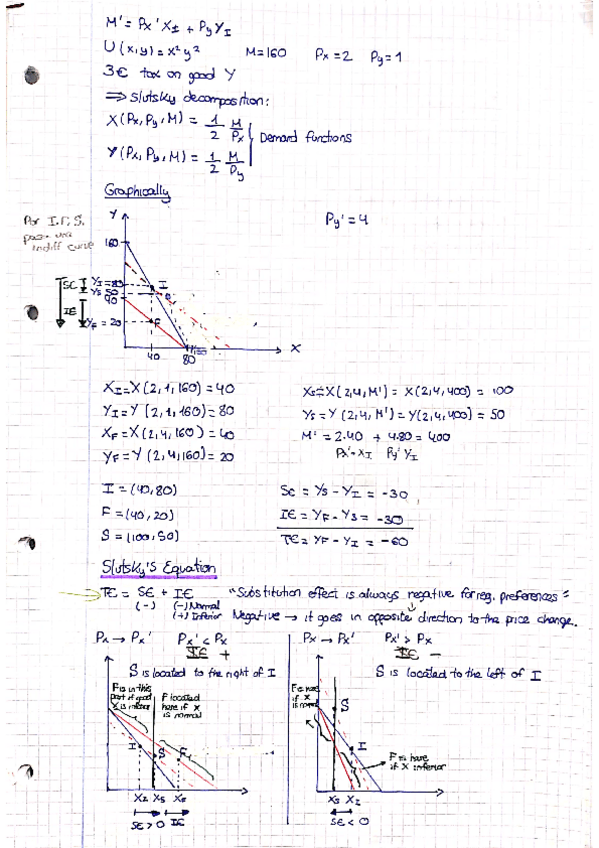 M' = Px' XI + Py YI
U(x,y) = x²y² M=160 Px=2 Py=1
3€ tax on good Y
⇒ Slutsky decomposition:
X(Px,Py,M) = 1/2 M/Px
Demand functions
Y(Px,Py,M) = 1/2 M/Py
Graphically
Por I.F.S.
indiff curve
Py' = 4
Y
160
SE
IE
YI = 80
YS 50
40
YF = 20
I
F
40
80
100
X
XI = X(2,1,160) = 40
YI = Y(2,1,160) = 80
XF = X(2,4,160) = 40
YF = Y(2,4,160) = 20
XS = X(2,4,M') = X(2,4,400) = 100
YS = Y(2,4,M') = Y(2,4,400) = 50
M' = 2·40 + 4·80 = 400
Px'·XI Py' YI
I = (40,80)
F = (40,20)
S = (100,50)
SE = YS - YI = -30
IE = YF - YS = -30
TE = YF - YI = -60
Slutsky's Equation
TE = SE + IE "Substitution effect is always negative for reg. preferences"
(-) (-) Normal
(+) Inferior
Negative → it goes in opposite direction to the price change.
Px → Px' Px' < Px
IE +
S is located to the right of I
F is in this part if good X is inferior
F located here if X is normal
I
S
F
XI XS XF
SE > 0 IE
Px → Px' Px' > Px
IE -
S is located to the left of I
F is here if X is normal
S
I
F is here if X inferior
XS XI
SE < 0